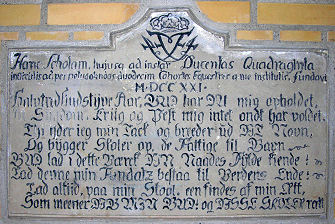 Hanc Scholam, hujusq ad instar Ducentas Quadraginta
duodecim Cohortes Equestres a me institutæ, fundavi
M·DCC XXI·
Halvtredsindstyve Aar, GUD har DU mig opholdet,
Sygdom, Krig og Pest mig intet ondt har voldet,
Thi yder ieg min Tack og breeder ud DIT Navn,
Og bygger Skoler op, de Fattige til Gavn
GUD lad i dette Værck DIN Naades Fylde kiende!
Lad denne min Fundatz bestaa til Verdens Ende!
Lad altiid paa min Stool een findes af min Ætt,
Som meener DIG MIN GUD og DISSE SKOLER rätt